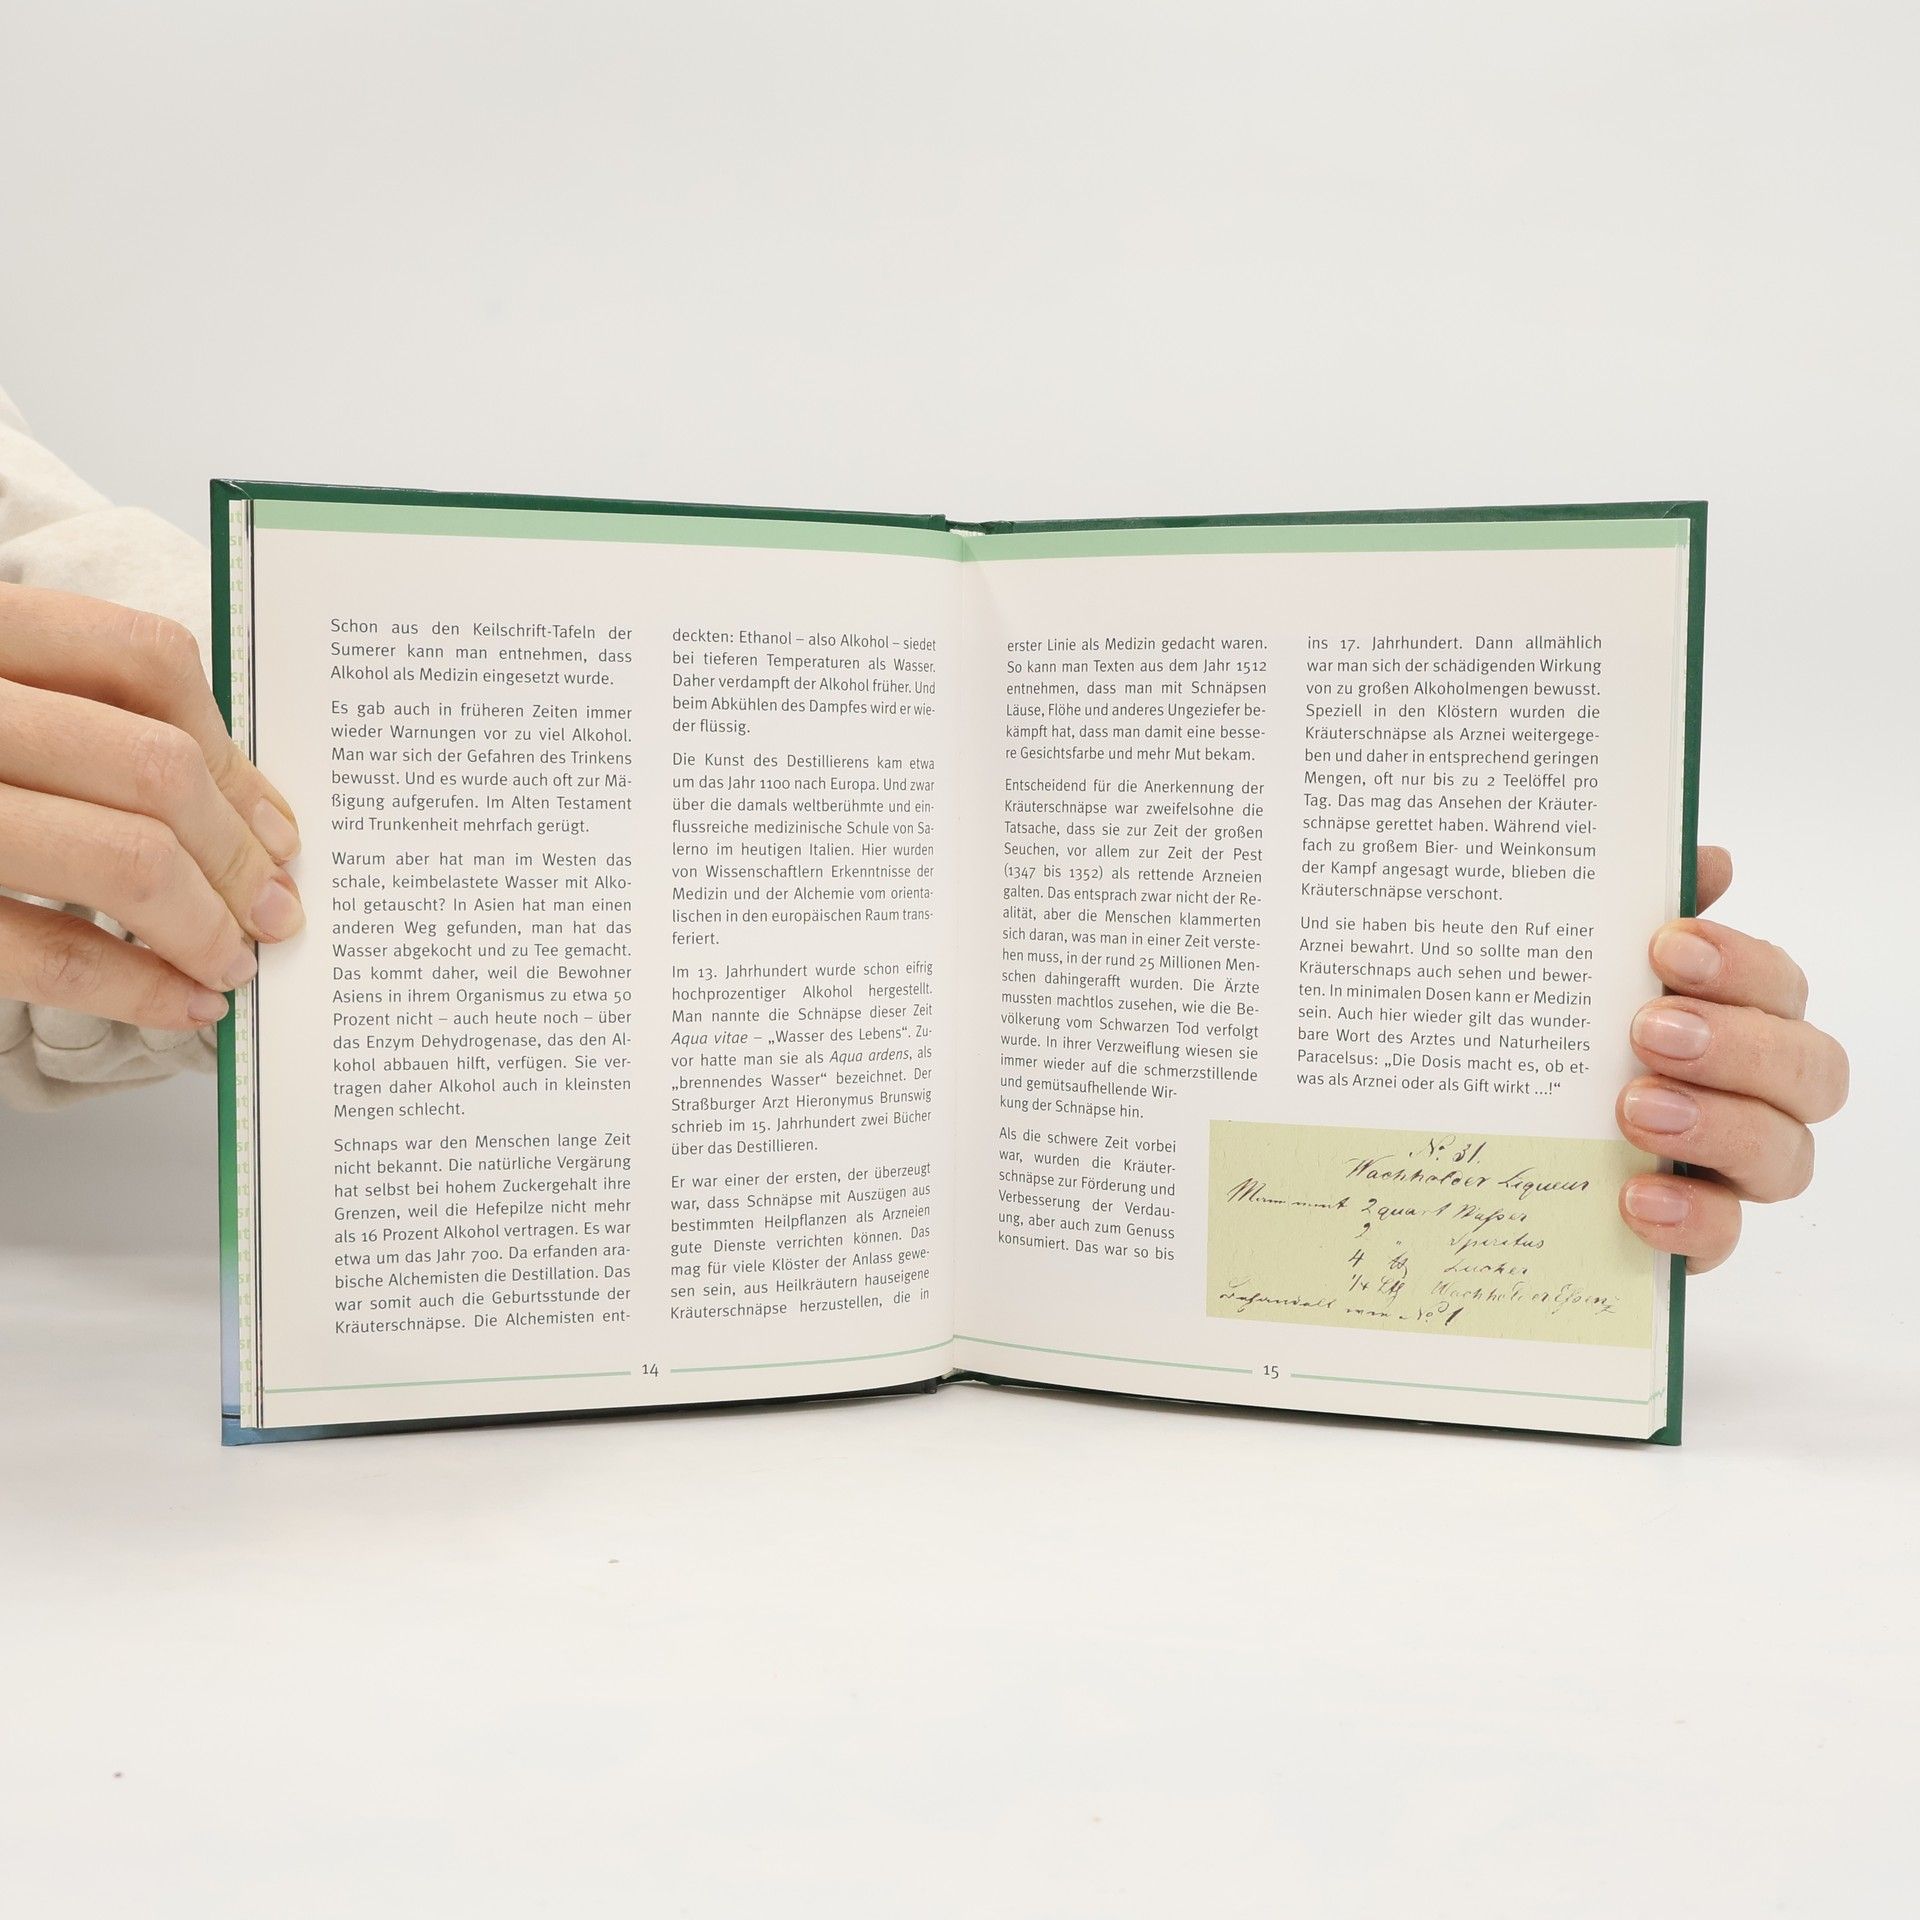 Schon aus den Keilschrift-Tafeln der
Sumerer kann man entnehmen, dass
Alkohol als Medizin eingesetzt wurde.
Es gab auch in früheren Zeiten immer
wieder Warnungen vor zu viel Alkohol.
Man war sich der Gefahren des Trinkens
bewusst. Und es wurde auch oft zur Mä-
ßigung aufgerufen. Im Alten Testament
wird Trunkenheit mehrfach gerügt.
Warum aber hat man im Westen das
schale, keimbelastete Wasser mit Alko-
hol getauscht? In Asien hat man einen
anderen Weg gefunden, man hat das
Wasser abgekocht und zu Tee gemacht.
Das kommt daher, weil die Bewohner
Asiens in ihrem Organismus zu etwa 50
Prozent nicht – auch heute noch – über
das Enzym Dehydrogenase, das den Al-
kohol abbauen hilft, verfügen. Sie ver-
tragen daher Alkohol auch in kleinsten
Mengen schlecht.
Schnaps war den Menschen lange Zeit
nicht bekannt. Die natürliche Vergärung
hat selbst bei hohem Zuckergehalt ihre
Grenzen, weil die Hefepilze nicht mehr
als 16 Prozent Alkohol vertragen. Es war
etwa um das Jahr 700. Da erfanden ara-
bische Alchemisten die Destillation. Das
war somit auch die Geburtsstunde der
Kräuterschnäpse. Die Alchemisten ent-
deckten: Ethanol – also Alkohol – siedet
bei tieferen Temperaturen als Wasser.
Daher verdampft der Alkohol früher. Und
beim Abkühlen des Dampfes wird er wie-
der flüssig.
Die Kunst des Destillierens kam etwa
um das Jahr 1100 nach Europa. Und zwar
über die damals weltberühmte und ein-
flussreiche medizinische Schule von Sa-
lerno im heutigen Italien. Hier wurden
von Wissenschaftlern Erkenntnisse der
Medizin und der Alchemie vom orienta-
lischen in den europäischen Raum trans-
feriert.
Im 13. Jahrhundert wurde schon eifrig
hochprozentiger Alkohol hergestellt.
Man nannte die Schnäpse dieser Zeit
Aqua vitae – „Wasser des Lebens“. Zu-
vor hatte man sie als Aqua ardens, als
„brennendes Wasser“ bezeichnet. Der
Straßburger Arzt Hieronymus Brunswig
schrieb im 15. Jahrhundert zwei Bücher
über das Destillieren.
Er war einer der ersten, der überzeugt
war, dass Schnäpse mit Auszügen aus
bestimmten Heilpflanzen als Arzneien
gute Dienste verrichten können. Das
mag für viele Klöster der Anlass gewe-
sen sein, aus Heilkräutern hauseigene
Kräuterschnäpse herzustellen, die in
14
erster Linie als Medizin gedacht waren.
So kann man Texten aus dem Jahr 1512
entnehmen, dass man mit Schnäpsen
Läuse, Flöhe und anderes Ungeziefer be-
kämpft hat, dass man damit eine besse-
re Gesichtsfarbe und mehr Mut bekam.
Entscheidend für die Anerkennung der
Kräuterschnäpse war zweifelsohne die
Tatsache, dass sie zur Zeit der großen
Seuchen, vor allem zur Zeit der Pest
(1347 bis 1352) als rettende Arzneien
galten. Das entsprach zwar nicht der Re-
alität, aber die Menschen klammerten
sich daran, was man in einer Zeit verste-
hen muss, in der rund 25 Millionen Men-
schen dahingerafft wurden. Die Ärzte
mussten machtlos zusehen, wie die Be-
völkerung vom Schwarzen Tod verfolgt
wurde. In ihrer Verzweiflung wiesen sie
immer wieder auf die schmerzstillende
und gemütsaufhellende Wir-
kung der Schnäpse hin.
Als die schwere Zeit vorbei
war, wurden die Kräuter-
schnäpse zur Förderung und
Verbesserung der Verdau-
ung, aber auch zum Genuss
konsumiert. Das war so bis
ins 17. Jahrhundert. Dann allmählich
war man sich der schädigenden Wirkung
von zu großen Alkoholmengen bewusst.
Speziell in den Klöstern wurden die
Kräuterschnäpse als Arznei weitergege-
ben und daher in entsprechend geringen
Mengen, oft nur bis zu 2 Teelöffel pro
Tag. Das mag das Ansehen der Kräuter-
schnäpse gerettet haben. Während viel-
fach zu großem Bier- und Weinkonsum
der Kampf angesagt wurde, blieben die
Kräuterschnäpse verschont.
Und sie haben bis heute den Ruf einer
Arznei bewahrt. Und so sollte man den
Kräuterschnaps auch sehen und bewer-
ten. In minimalen Dosen kann er Medizin
sein. Auch hier wieder gilt das wunder-
bare Wort des Arztes und Naturheilers
Paracelsus: „Die Dosis macht es, ob et-
was als Arznei oder als Gift wirkt ...!“
No 31.
Wachholder Liqueur
2 quart Waßer
2 " Spiritus
4 Zucker
1/4 Wachholder Eßenz
No 1
15